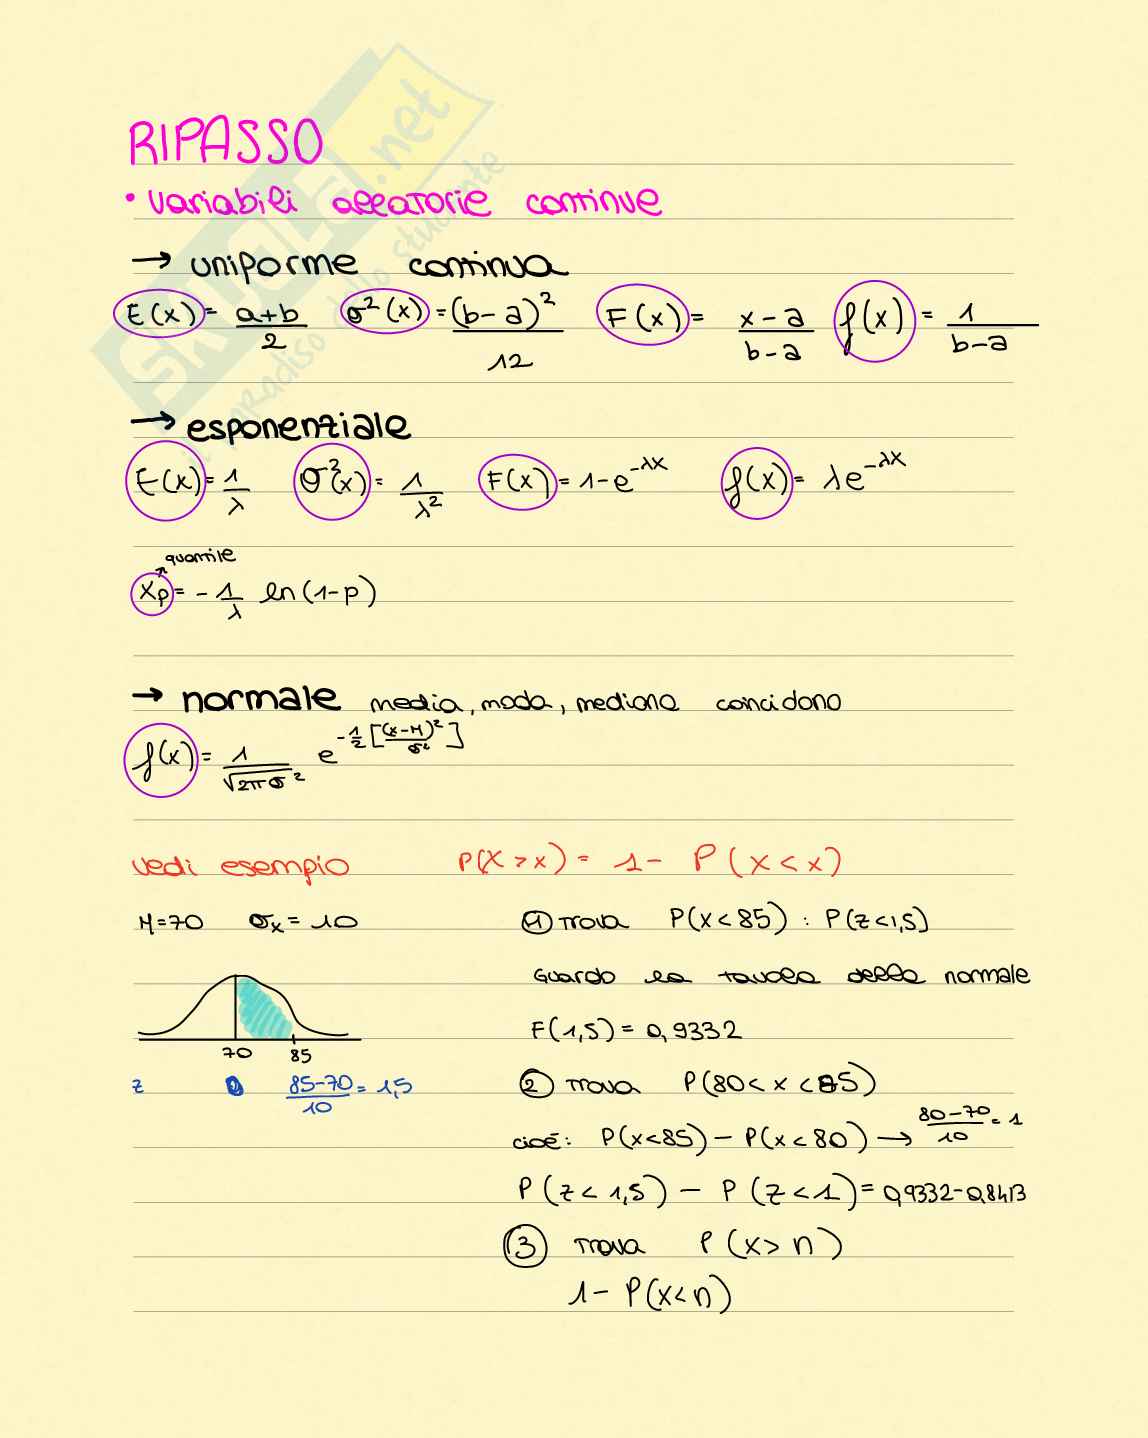 RIPASSO
• Variabili aleatorie continue
→ uniforme continua
E(x) = a+b/2 σ²(x) = (b-a)²/12 F(x) = x-a/b-a f(x) = 1/b-a
→ esponenziale
E(x) = 1/λ σ²(x) = 1/λ² F(x) = 1-e^-λx f(x) = λe^-λx
quantile
xp = - 1/λ ln(1-p)
→ normale media, moda, mediana coincidono
f(x) = 1/√2πσ² e^-1/2[(x-M)²/σ²]
vedi esempio P(X>x) = 1- P(X<x)
M=70 σx = 10 ① Trova P(x<85) : P(z<1,5)
Guardo la tavola della normale
F(1,5) = 0,9332
70 85
z 0 85-70/10 = 1,5 ② Trova P(80<x<85)
cioè: P(x<85) - P(x<80) → 80-70/10 = 1
P(z<1,5) - P(z<1) = 0,9332-0,8413
③ Trova P(x>n)
1- P(x<n)
skuola.net
il paradiso dello studente